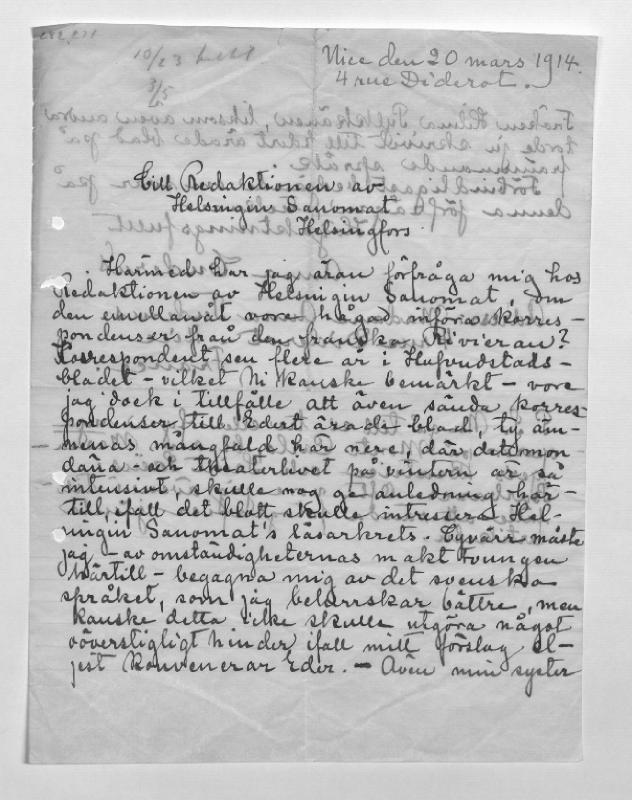 10/23
3/5
Nice den 20 mars 1914.
4 rue Diderot.
Till Redaktionen av
Helsingin Sanomat
Helsingfors.
Härmed har jag äran förfråga mig hos
Redaktionen av Helsingin Sanomat, om
den emellanåt vore hågad införa korres-
pondenser från den franska Rivieran?
Korrespondent sen flere år i Hufvudstads-
bladet - vilket Ni kanske bemärkt - vore
jag dock i tillfälle att även sända korres-
pondenser till Edert ärade blad, ty äm-
nenas mångfald här nere, där det mon
däna - och theaterlivet på vintern är så
intensivt, skulle nog ge anledning här-
till, ifall det blott skulle intressera Hel-
singin Sanomat's läsarkrets. Tyvärr måste
jag - av omständigheternas makt tvungen
härtill - begagna mig av det svenska
språket, som jag behärrskar bättre, men
kanske detta icke skulle utgöra något
oöverstigligt hinder, ifall mitt förslag el-
jest konvenerar Eder. - Även min syster